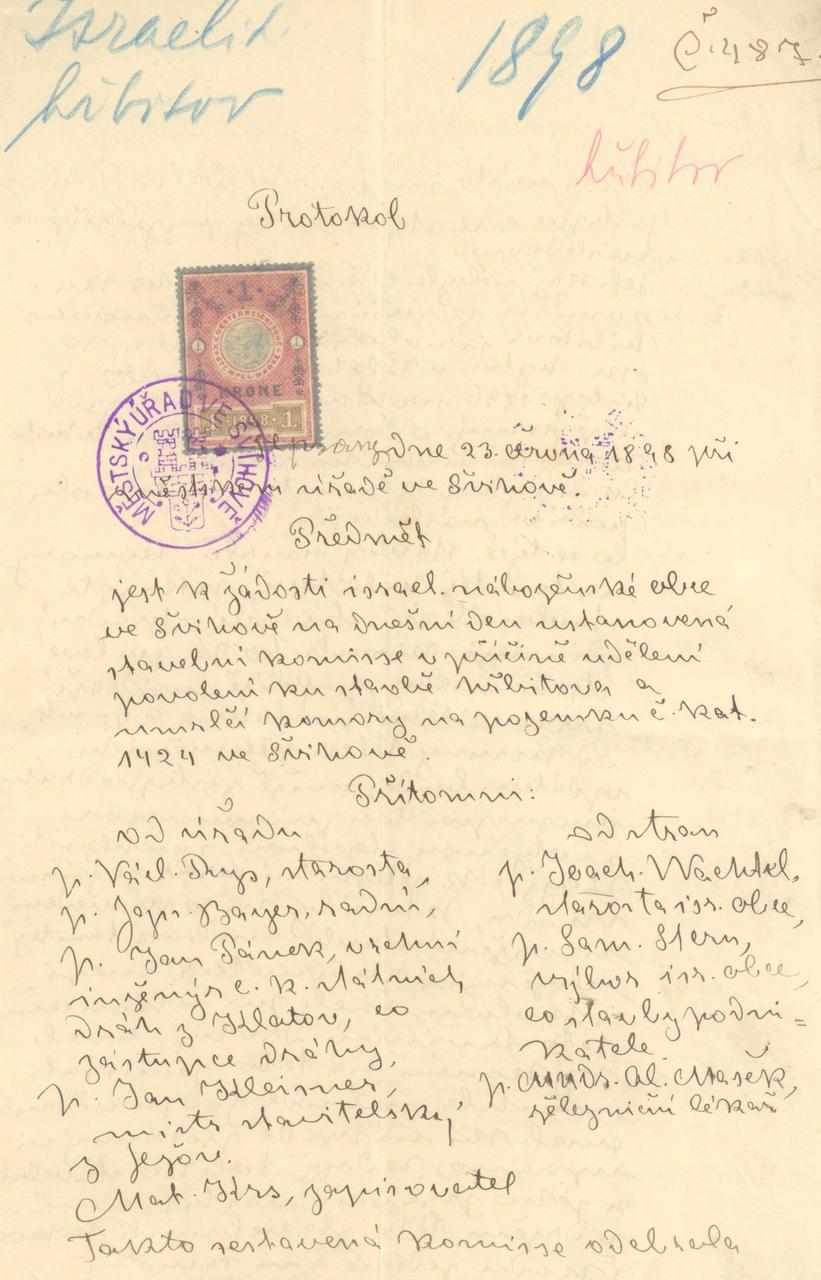 Israelit.
hřbitov
1898
Č. 487.
hřbitov
Protokol
1
K.K. OESTERREICHISCHE
STEMPEL-MARKE
1 1
KRONE
1898 · 1
MĚSTSKÝ ÚŘAD VE ŠVIHOVĚ
sepsaný dne 23. června 1898 při
městském úřadě ve Švihově.
Předmět
jest k žádosti israel. náboženské obce
ve Švihově na dnešní den ustanovená
stavební komisse v příčině udělení
povolení ku stavbě hřbitova a
umrlčí komory na pozemku č. kat.
1424 ve Švihově.
Přítomni:
od úřadu
p. Václ. , starosta,
p. Bayer, radní,
p. Jan Pánek, vrchní
inženýr c. k. státních
drah z Klatov, co
zástupce dráhy,
p. Jan Kleisner,
mistr stavitelský
z Ježov.
Mat. Krs, zapisovatel
od stran
p. Joach. Wachtel,
starosta isr. obce,
p. Sam. Stern,
výbor isr. obce,
co stavby podni=
katele.
p. MUDr. Al. Mašek,
železniční lékař
Takto sestavená komisse odebrala